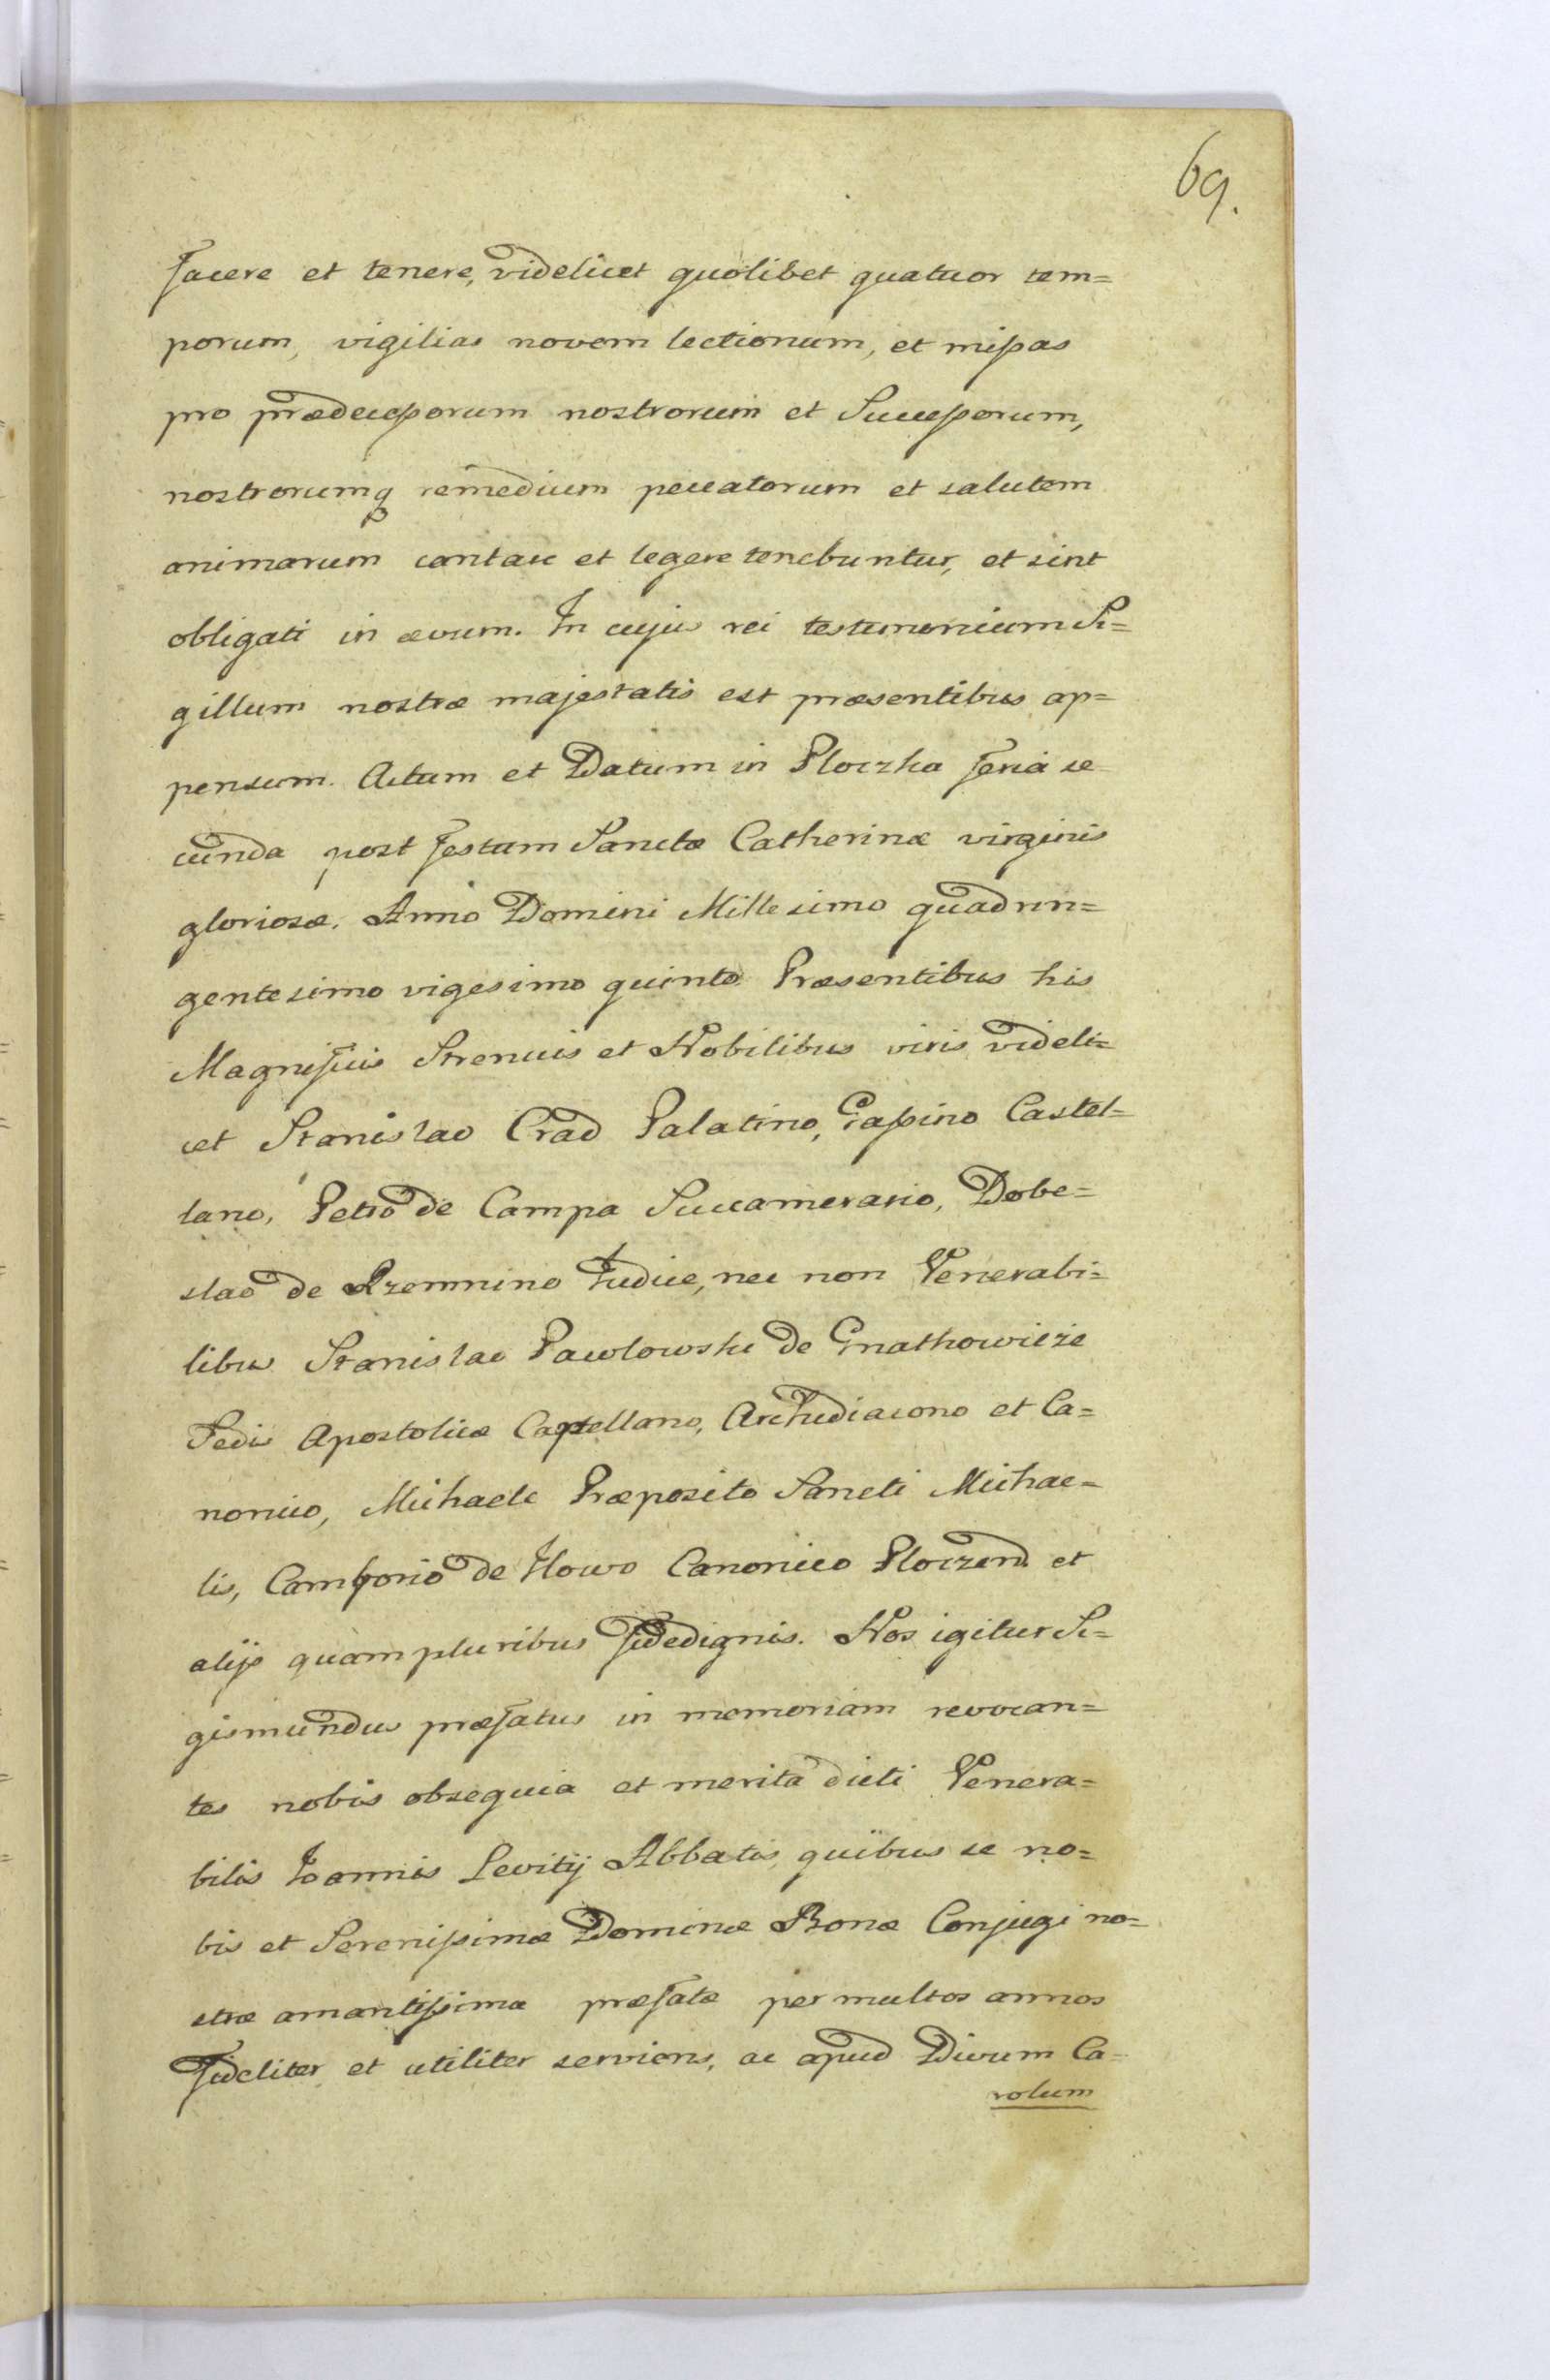 69.
facere et tenere, videlicet quolibet quatuor tem=
porum, vigilias novem lectionum, et missas
pro prædecessorum nostrorum et Successorum,
nostrorumq remedium peccatorum et salutem
animarum cantare et legere tenebuntur, et sint
obligati in ævum. In cujus rei testimonium Si=
gillum nostræ majestatis est præsentibus ap=
pensum. Actum et Datum in Ploczka feria se
cunda post festum Sanctæ Catherinæ virginis
gloriosæ. Anno Domini Millesimo quadrin=
gentesimo vigesimo quinto Præsentibus his
Magnificis Strenuis et Nobilibus viris videli=
cet Stanislao Crad Palatino, Grassino Castel=
lano, Petro de Campa Succamerario, Dobe=
slao de Krzemnino Judice, nec non Venerabi=
libus Stanislao Pawlowski de Gnathowicze
Sedis Apostolicæ Capellano, Archidiacono et Ca=
nonico, Michaele Præposito Sancti Michae=
lis, Camforio de Ilowo Canonico Ploczend et
alijs quam pluribus fidedignis. Nos igitur Si=
gismundus præfatus in memoriam revocan=
tes nobis obsequia et merita dicti Venera=
bilis Joannis Levitij Abbatis, quibus se no=
bis et Serenissimæ Dominæ Bonæ Conjugi no=
stræ amantissima præfatæ per multos annos
fideliter et utiliter serviens, ac apud Divum Ca=
rolum